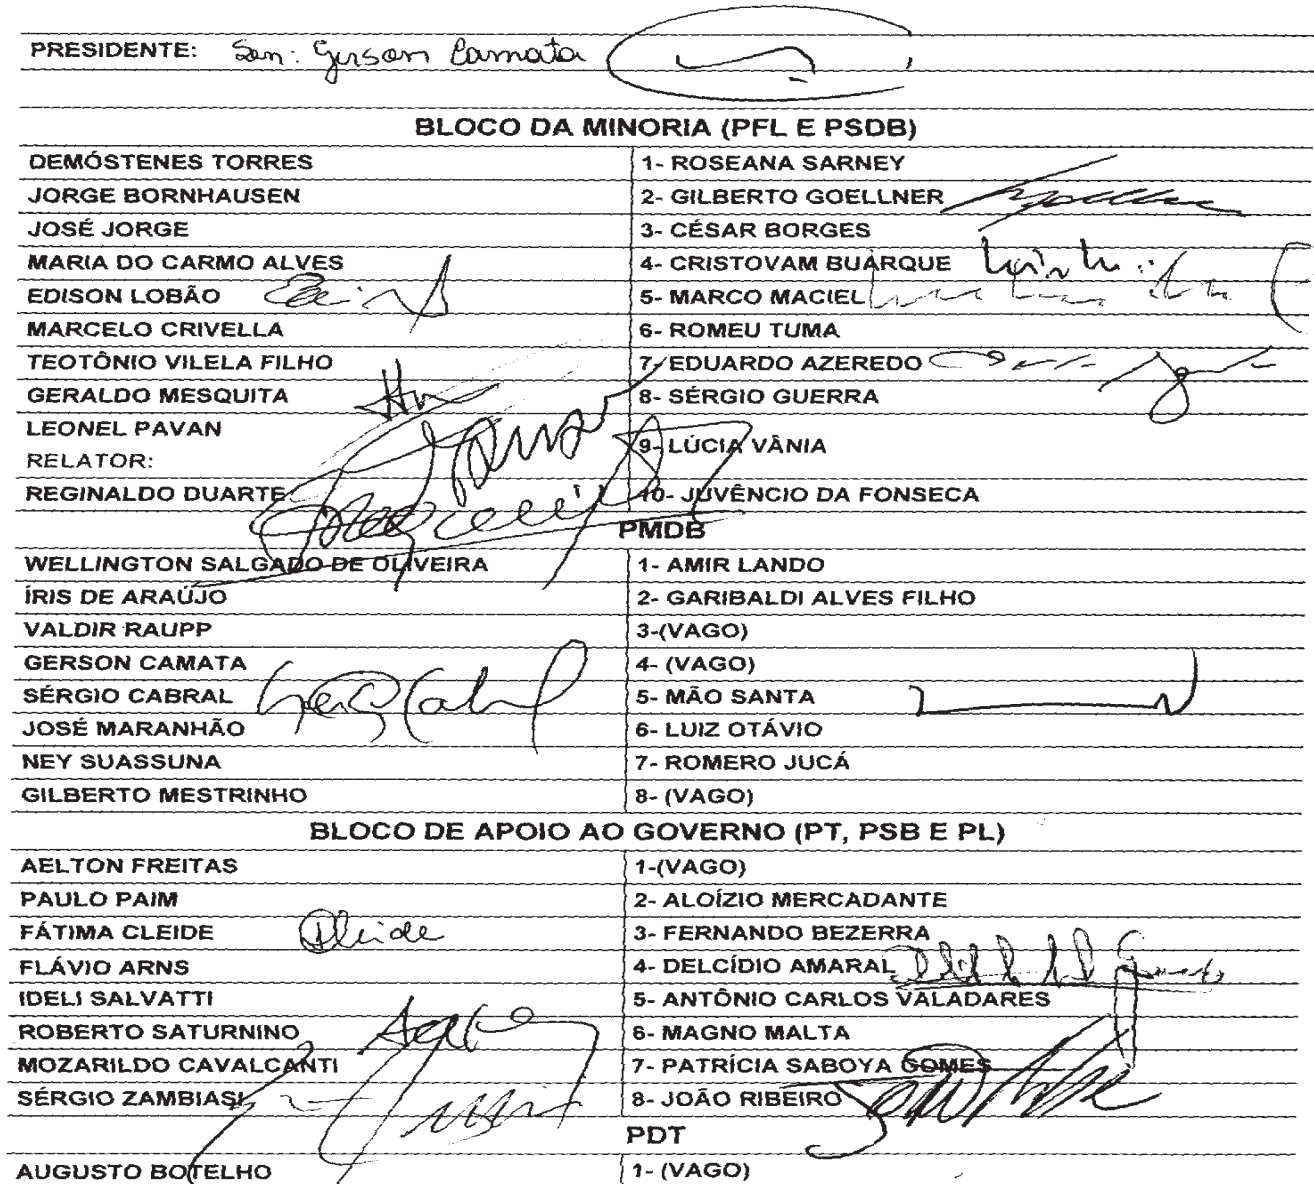 PRESIDENTE: Sen: Gerson Camata
BLOCO DA MINORIA (PFL E PSDB)
DEMÓSTENES TORRES 1- ROSEANA SARNEY
JORGE BORNHAUSEN 2- GILBERTO GOELLNER
JOSÉ JORGE 3- CÉSAR BORGES
MARIA DO CARMO ALVES 4- CRISTOVAM BUARQUE
EDISON LOBÃO 5- MARCO MACIEL
MARCELO CRIVELLA 6- ROMEU TUMA
TEOTÔNIO VILELA FILHO 7- EDUARDO AZEREDO
GERALDO MESQUITA 8- SÉRGIO GUERRA
LEONEL PAVAN 9- LÚCIA VÂNIA
RELATOR:
REGINALDO DUARTE 10- JUVÊNCIO DA FONSECA
PMDB
WELLINGTON SALGADO DE OLIVEIRA 1- AMIR LANDO
ÍRIS DE ARAÚJO 2- GARIBALDI ALVES FILHO
VALDIR RAUPP 3-(VAGO)
GERSON CAMATA 4- (VAGO)
SÉRGIO CABRAL 5- MÃO SANTA
JOSÉ MARANHÃO 6- LUIZ OTÁVIO
NEY SUASSUNA 7- ROMERO JUCÁ
GILBERTO MESTRINHO 8- (VAGO)
BLOCO DE APOIO AO GOVERNO (PT, PSB E PL)
AELTON FREITAS 1-(VAGO)
PAULO PAIM 2- ALOÍZIO MERCADANTE
FÁTIMA CLEIDE Cleide 3- FERNANDO BEZERRA
FLÁVIO ARNS 4- DELCÍDIO AMARAL
IDELI SALVATTI 5- ANTÔNIO CARLOS VALADARES
ROBERTO SATURNINO 6- MAGNO MALTA
MOZARILDO CAVALCANTI 7- PATRÍCIA SABOYA GOMES
SÉRGIO ZAMBIASI 8- JOÃO RIBEIRO
PDT
AUGUSTO BOTELHO 1- (VAGO)